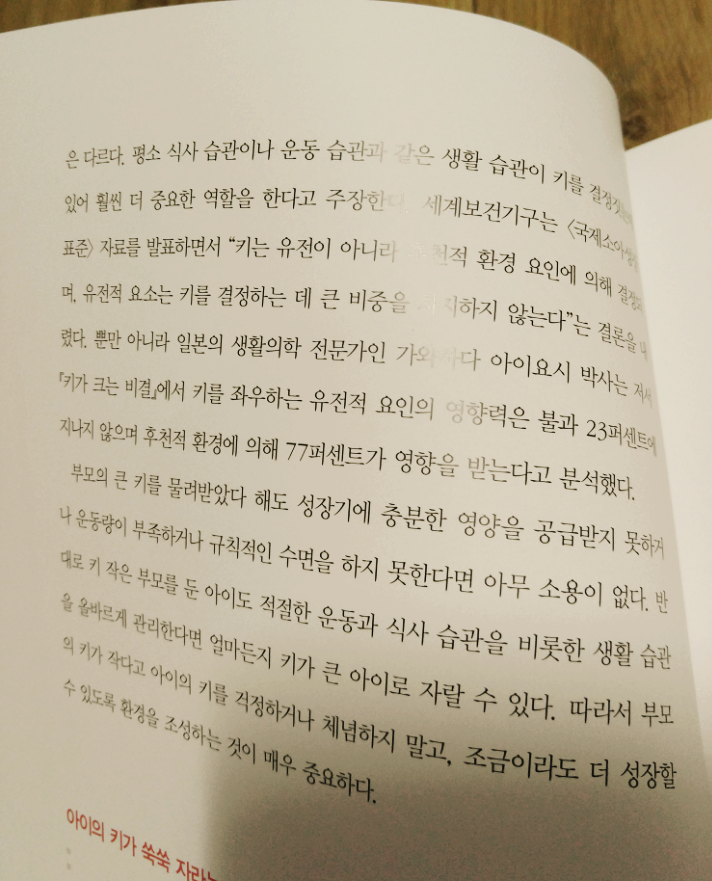 은 다르다. 평소 식사 습관이나 운동 습관과 같은 생활 습관이 키를
있어 훨씬 더 중요한 역할을 한다고 주장한다. 세계보건기구는
표준〉 자료를 발표하면서 “키는 유전이 아니라 후천적 환경 요인에 의해
며, 유전적 요소는 키를 결정하는 데 큰 비중을 차지하지 않는다”는 결론을 내
렸다. 뿐만 아니라 일본의 생활의학 전문가인 아이요시 박사는 저서
『키가 크는 비결』에서 키를 좌우하는 유전적 요인의 영향력은 불과 23퍼센트에
지나지 않으며 후천적 환경에 의해 77퍼센트가 영향을 받는다고 분석했다.
부모의 큰 키를 물려받았다 해도 성장기에 충분한 영양을 공급받지 못하거
나 운동량이 부족하거나 규칙적인 수면을 하지 못한다면 아무 소용이 없다. 반
대로 키 작은 부모를 둔 아이도 적절한 운동과 식사 습관을 비롯한 생활 습관
을 올바르게 관리한다면 얼마든지 키가 큰 아이로 자랄 수 있다. 따라서 부모
의 키가 작다고 아이의 키를 걱정하거나 체념하지 말고, 조금이라도 더 성장할
수 있도록 환경을 조성하는 것이 매우 중요하다.
아이의 키가 쑥쑥